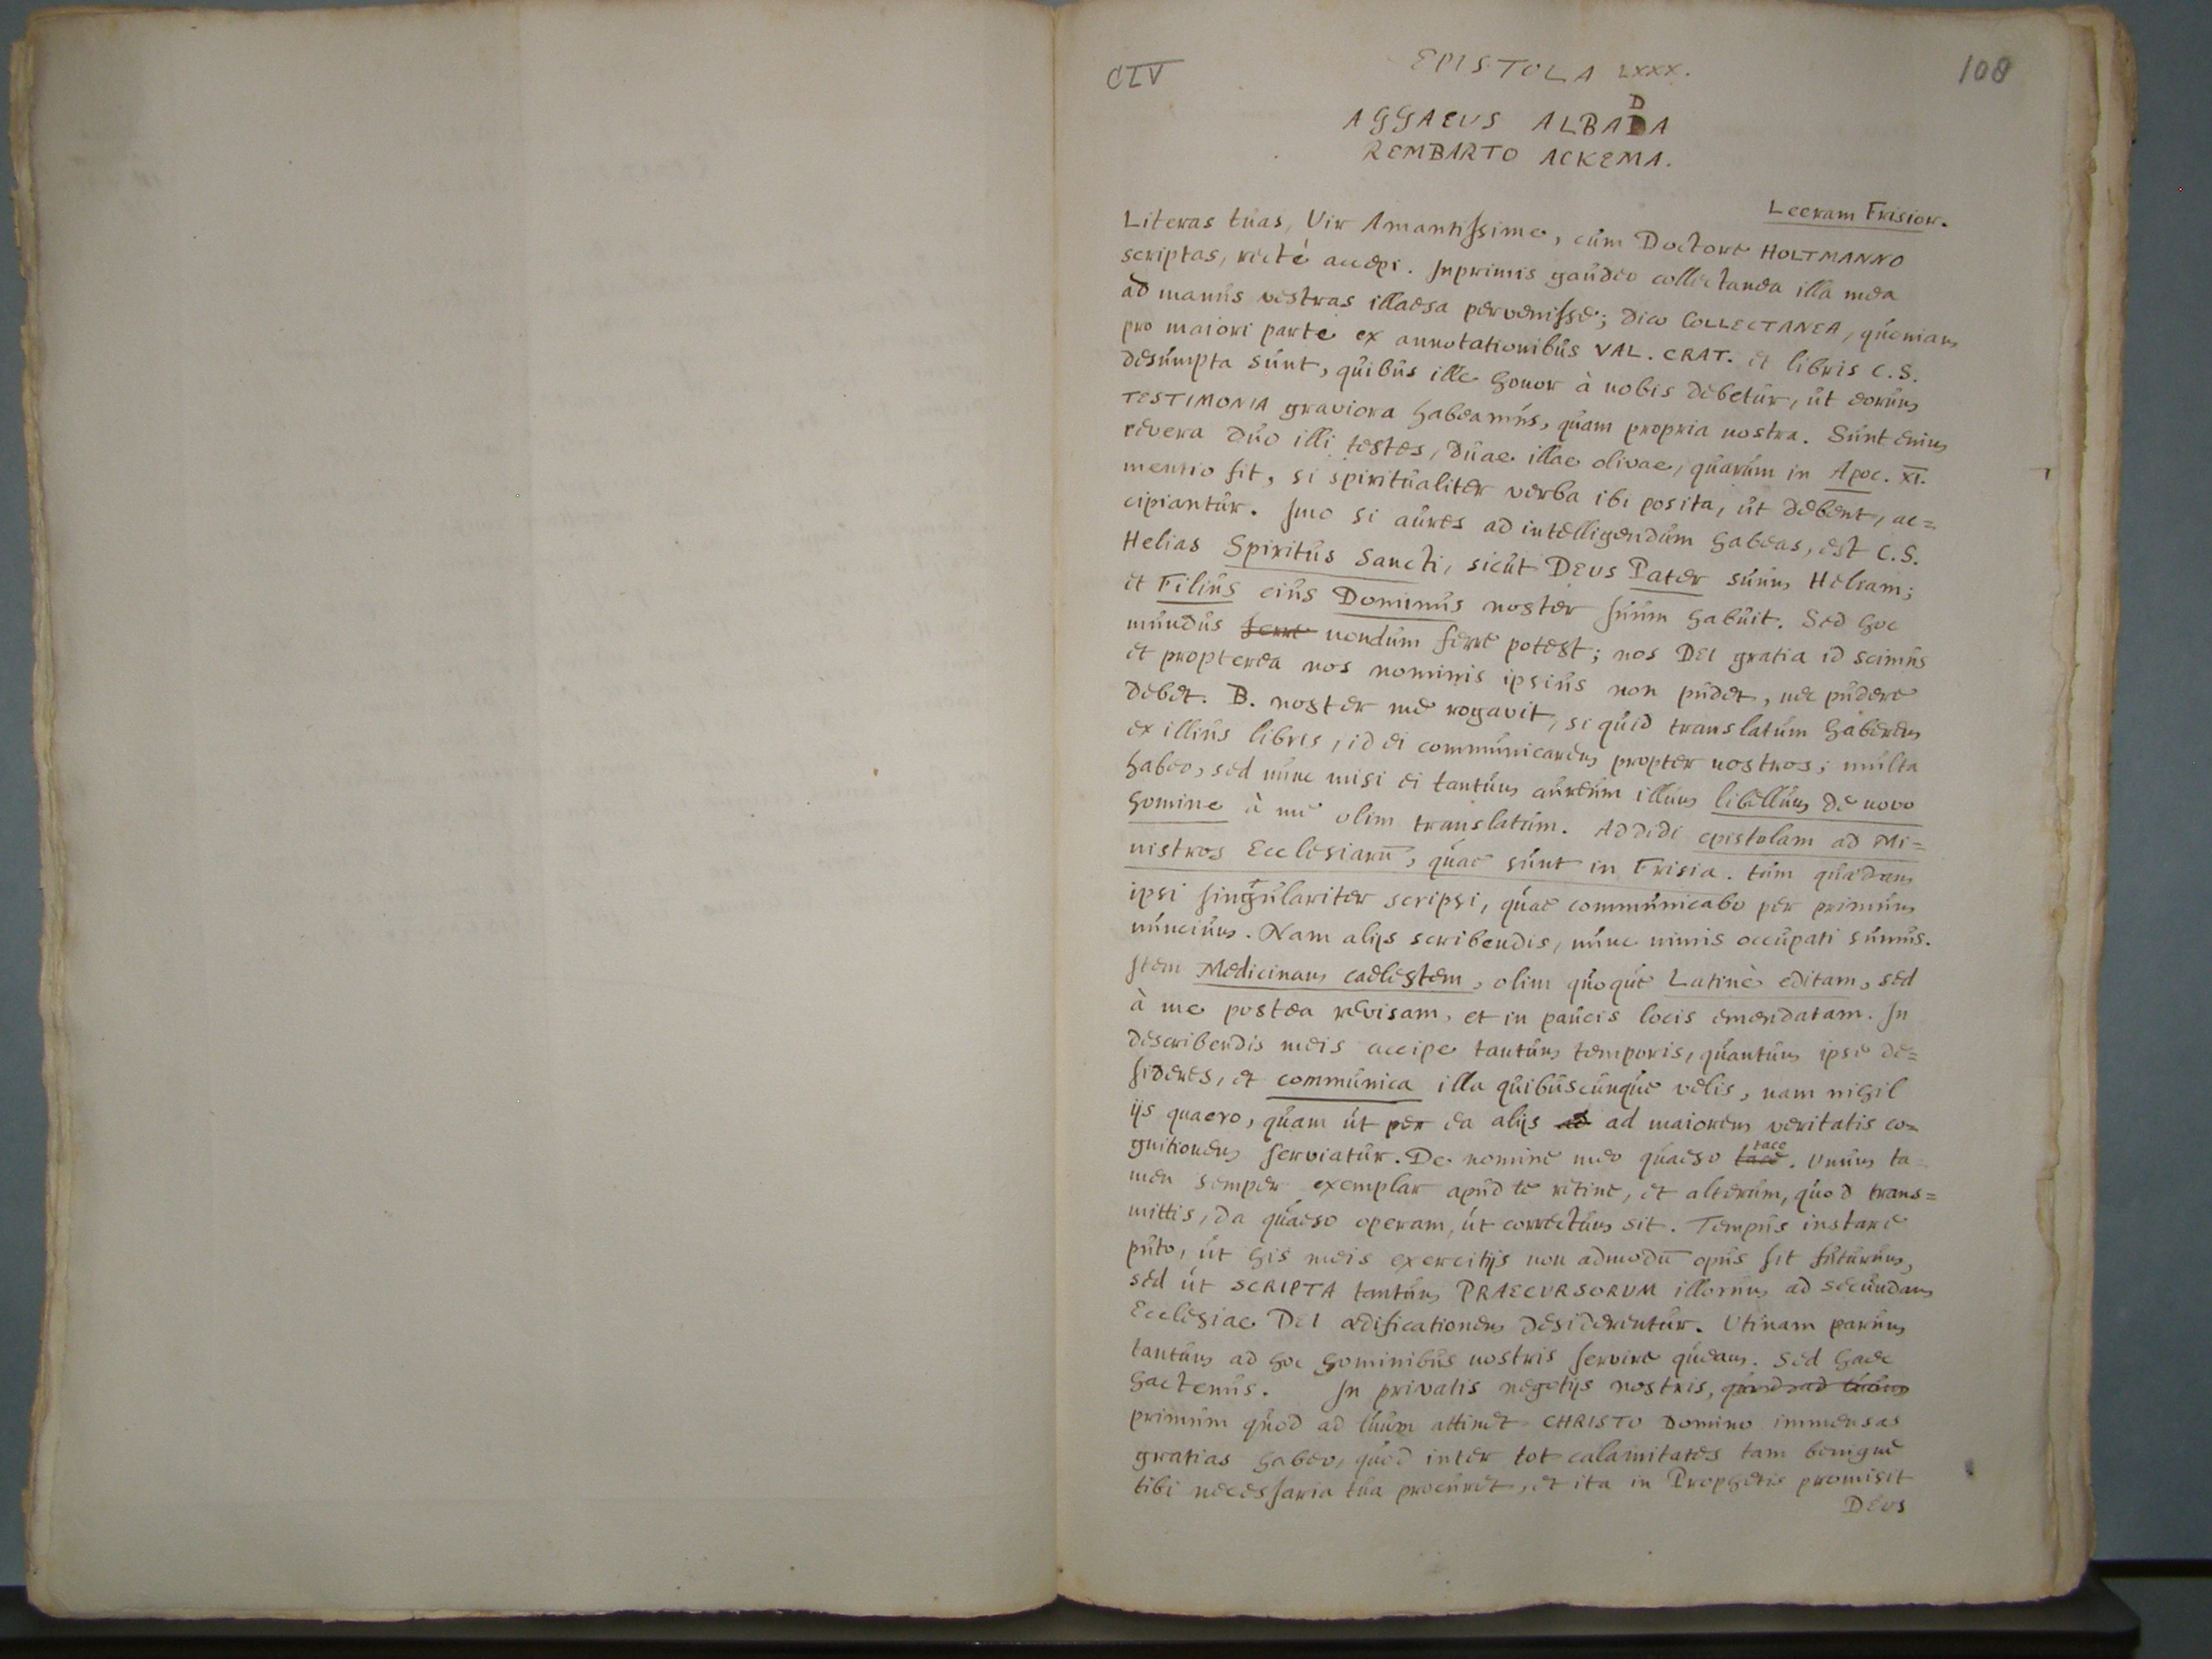 CLV
EPISTOLA LXXX.
108
D
AGGAEUS ALBADA
REMBARTO ACKEMA.
Leeram Frisior.
Literas tuas, Vir Amantissime, cùm Doctore HOLTMANNO
scriptas, recté accepi. Inprimis gaudeo collectanea illa mea
ad manus vestras illaesa pervenisse; dico COLLECTANEA, quoniam
pro maiori parte ex annotationibus VAL. CRAT. et libris C.S.
desumpta sunt, quibus ille honor à nobis debetur, ut eorum
TESTIMONIA graviora habeamus, quam propria nostra. Sunt enim
revera duo illi testes, duae illae olivae, quarum in Apoc. XI.
mentio fit, si spiritualiter verba ibi posita, ut debent, ac=
cipiantur. Imo si aures ad intelligendum habeas, est C.S.
Helias Spiritus Sancti, sicut DEUS Pater suum Heliam;
et Filius eius Dominus noster suum habuit. Sed hoc
mundus ferre nondum ferre potest; nos DEI gratia id scimus
et propterea nos nominis ipsius non pudet, nec pudere
debet. B. noster me rogavit, si quid translatum haberem
ex illius libris, id ei communicarem propter nostros; multa
habeo, sed nunc misi ei tantum aureum illum libellum de novo
homine à me olim translatum. Addidi epistolam ad Mi=
nistros Ecclesiarū, quae sunt in Frisia. tum quaedam
ipsi singulariter scripsi, quae communicabo per primum
nuncium. Nam alijs scribendis, nunc nimis occupati sumus.
Item Medicinam caelestem, olim quoque Latinè editam, sed
à me postea revisam, et in paucis locis emendatam. In
describendis meis accipe tantum temporis, quantum ipse de=
sideres, et communica illa quibuscunque velis, nam nihil
ijs quaero, quam ut per ea alijs ad ad maiorem veritatis co=
gnitionem serviatur. De nomine meo quaeso tace tace. Unum ta
men semper exemplar apud te retine, et alterum, quod trans=
mittis, da quaeso operam, ut correctum sit. Tempus instare
puto, ut his meis exercitijs non admodū opus sit futurum,
sed ut SCRIPTA tantum PRAECURSORUM illorum ad secundam
Ecclesiae DEI aedificationem desiderentur. Utinam parum
tantum ad hoc hominibus nostris servire queam. Sed haec
hactenus. In privatis negotijs nostris, quod ad tuum
primum quod ad tuum attinet CHRISTO Domino immensas
gratias habeo, quod inter tot calamitates tam benigne
tibi necessaria tua procuret, et ita in Prophetis promisit
DEUS